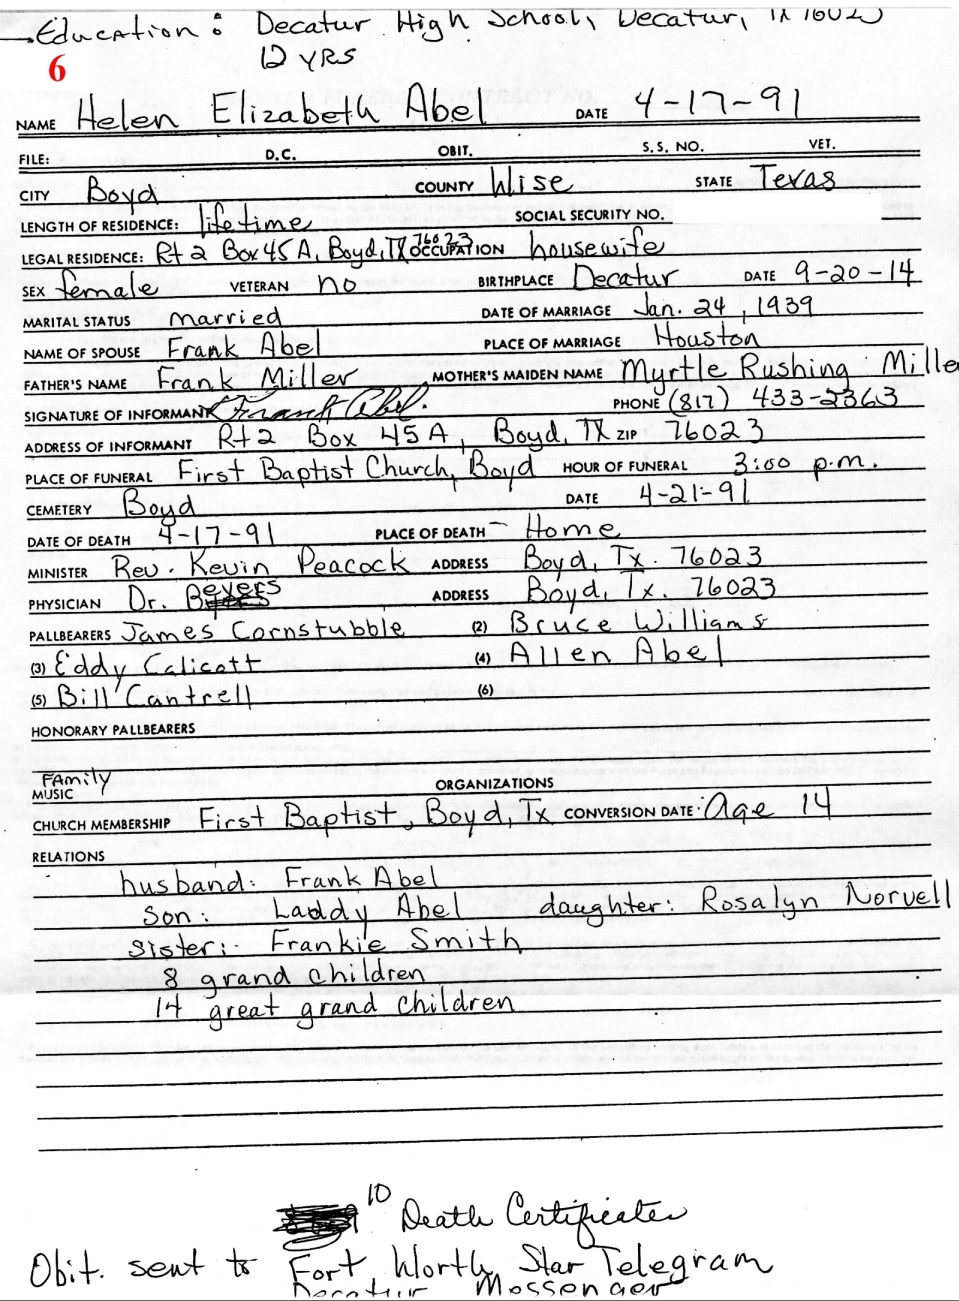 Education: Decatur High School, Decatur, TX 76023
12 YRS
6
NAME Helen Elizabeth Abel DATE 4-17-91
FILE: D.C. OBIT. S.S. NO. VET.
CITY Boyd COUNTY Wise STATE Texas
LENGTH OF RESIDENCE: lifetime SOCIAL SECURITY NO.
LEGAL RESIDENCE: Rt 2 Box 45 A, Boyd, TX 76023 OCCUPATION housewife
SEX female VETERAN no BIRTHPLACE Decatur DATE 9-20-14
MARITAL STATUS married DATE OF MARRIAGE Jan. 24, 1939
NAME OF SPOUSE Frank Abel PLACE OF MARRIAGE Houston
FATHER'S NAME Frank Miller MOTHER'S MAIDEN NAME Myrtle Rushing Mille
SIGNATURE OF INFORMANT Frank Abel. PHONE (817) 433-2363
ADDRESS OF INFORMANT Rt 2 Box 45 A, Boyd, TX ZIP 76023
PLACE OF FUNERAL First Baptist Church, Boyd HOUR OF FUNERAL 3:00 p.m.
CEMETERY Boyd DATE 4-21-91
DATE OF DEATH 4-17-91 PLACE OF DEATH Home
MINISTER Rev. Kevin Peacock ADDRESS Boyd, Tx. 76023
PHYSICIAN Dr. Beyers ADDRESS Boyd, Tx. 76023
PALLBEARERS James Cornstubble (2) Bruce Williams
(3) Eddy Calicott (4) Allen Abel
(5) Bill Cantrell (6)
HONORARY PALLBEARERS
FAmily
MUSIC ORGANIZATIONS
CHURCH MEMBERSHIP First Baptist, Boyd, Tx CONVERSION DATE Age 14
RELATIONS
husband: Frank Abel
son: Laddy Abel daughter: Rosalyn Norvell
sister: Frankie Smith
8 grand children
14 great grand children
10 Death Certificates
Obit. sent to Fort Worth Star Telegram
Decatur Messenger